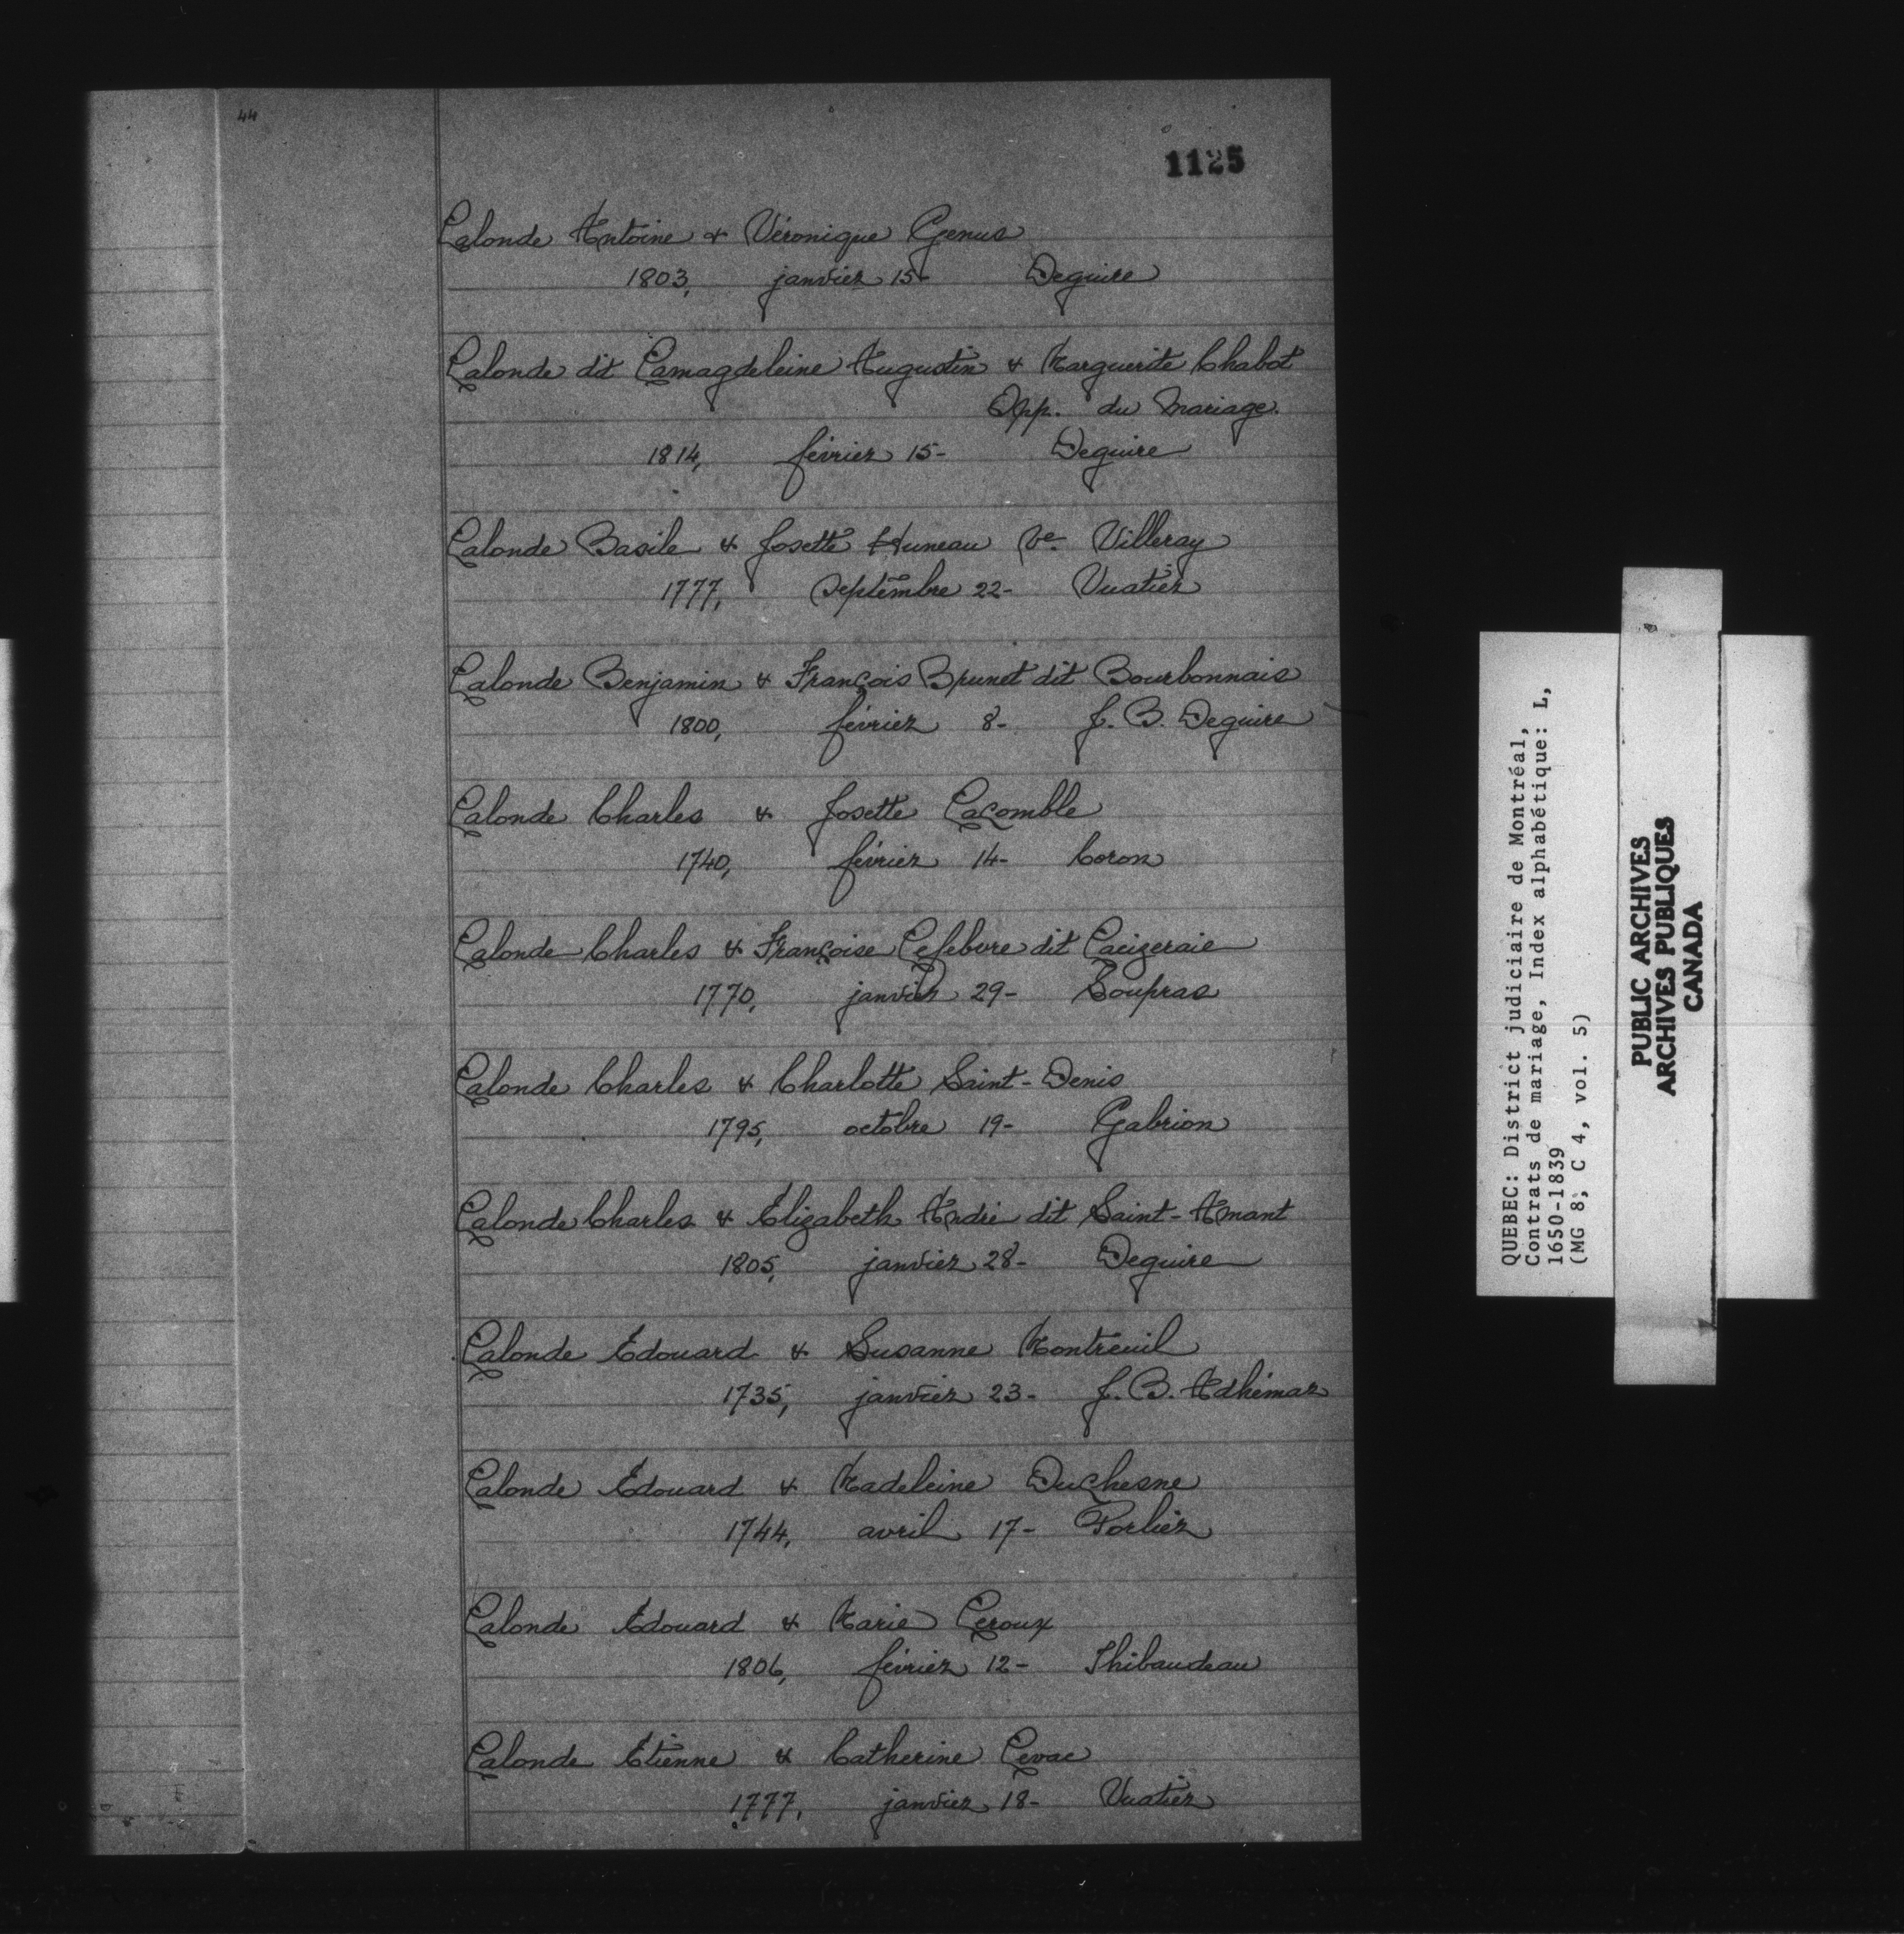 44
1125
Lalonde Antoine & Véronique Genus
1803, janvier 15- Deguire
Lalonde dit Lamagdeleine Augustin & Marguerite Chabot
Opp. du Mariage.
1814, février 15- Deguire
Lalonde Basile & Josette Huneau Ve. Villeray
1777, Septembre 22- Vuatier
Lalonde Benjamin & François Brunet dit Bourbonnais
1800, février 8- J. B. Deguire
Lalonde Charles & Josette Lacomble
1740, février 14- Coron
Lalonde Charles & Françoise Lefebvre dit Lacizeraie
1770, janvier 29- Soupras
Lalonde Charles & Charlotte Saint-Denis
1795, octobre 19- Gabrion
Lalonde Charles & Élizabeth André dit Saint-Amant
1805, janvier 28- Deguire
Lalonde Édouard & Susanne Montreuil
1735, janvier 23- J. B. Adhémar
Lalonde Édouard & Madeleine Duchesne
1744, avril 17- Porlier
Lalonde Édouard & Marie Leroux
1806, février 12- Thibaudeau
Lalonde Étienne & Catherine Levac
1777, janvier 18- Vuatier
QUEBEC: District judiciaire de Montréal,
Contrats de mariage, Index alphabétique: L,
1650-1839
(MG 8, C 4, vol. 5)
PUBLIC ARCHIVES
ARCHIVES PUBLIQUES
CANADA